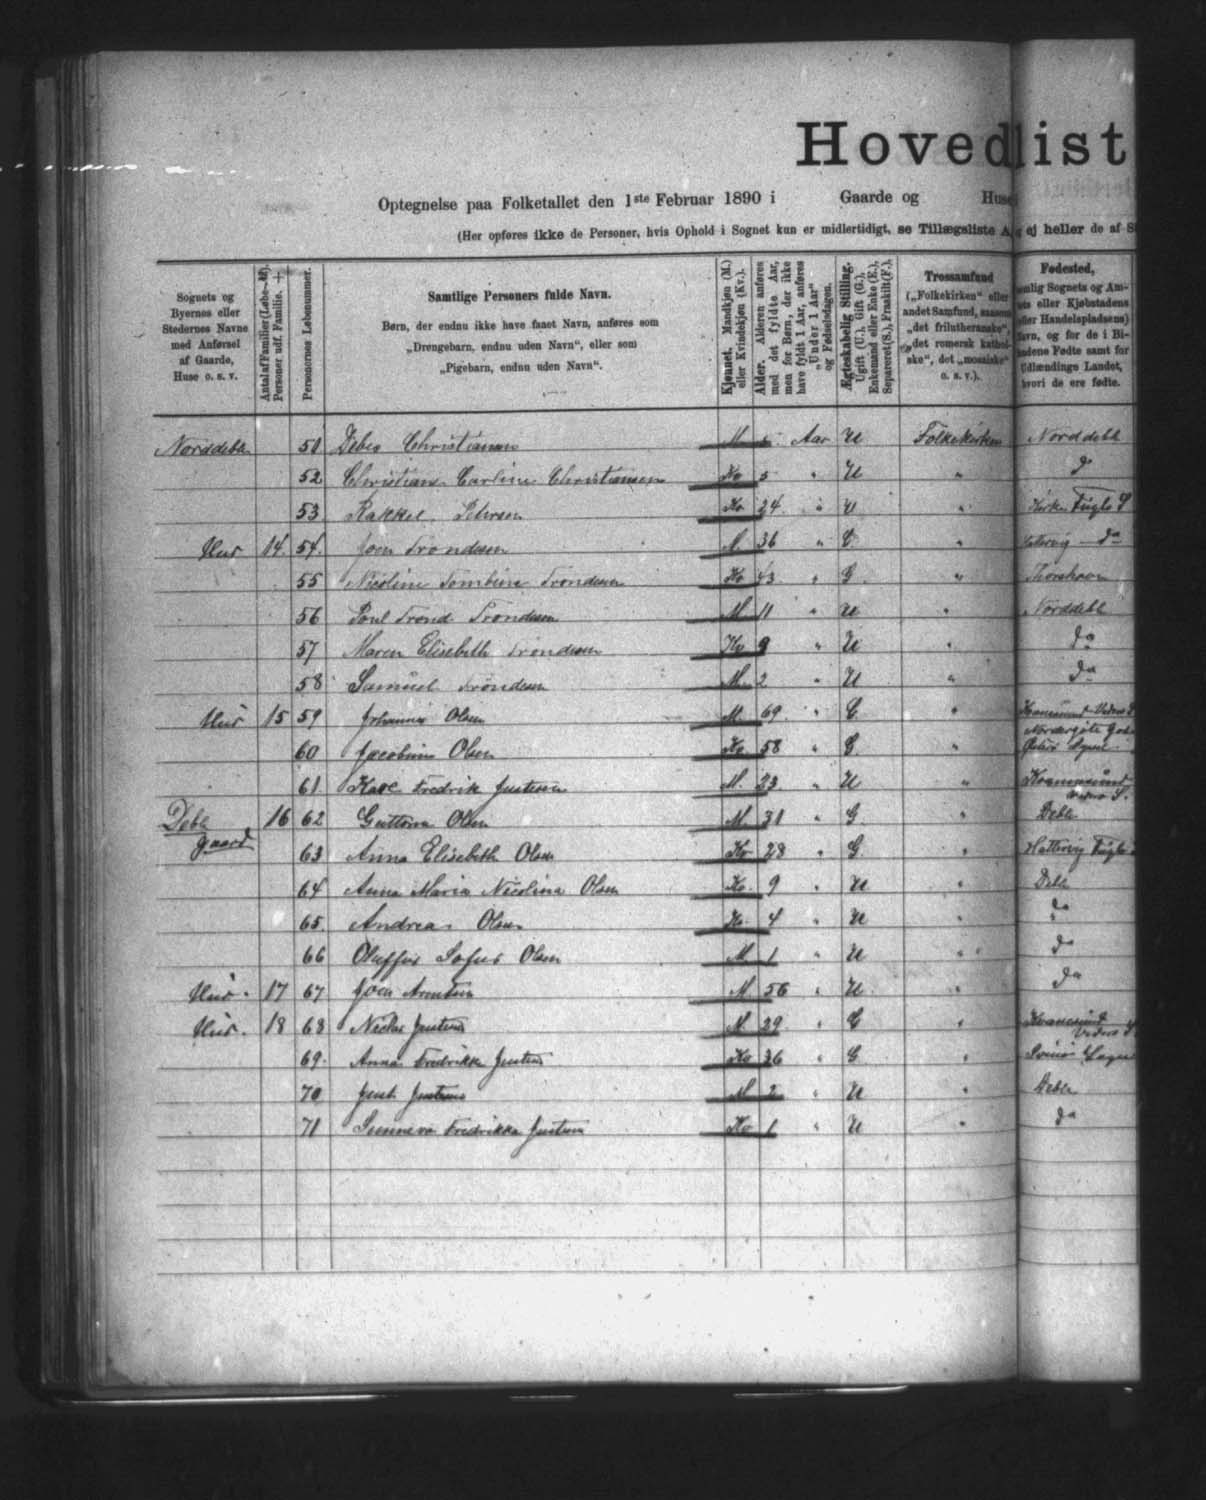 Hovedlist
Optegnelse paa Folketallet den 1ste Februar 1890 i Gaarde og Huse
(Her opføres ikke de Personer, hvis Ophold i Sognet kun er midlertidigt, se Tillægsliste A, ej heller de af
Sognets og Byernes eller Stedernes Navne med Anførsel af Gaarde, Huse o. s. v.
Antal af Familier (Løbe-№). Personer udf. Familie. +
Personernes Løbenummer.
Samtlige Personers fulde Navn.
Børn, der endnu ikke have faaet Navn, anføres som
„Drengebarn, endnu uden Navn“, eller som
„Pigebarn, endnu uden Navn“.
Kjønnet. Mandkjøn (M.) eller Kvindekjøn (Kv.).
Alder. Alderen anføres med det fyldte Aar, men for Børn, der ikke have fyldt 1 Aar, anføres „Under 1 Aar“ og Fødselsdagen.
Ægteskabelig Stilling. Ugift (U.), Gift (G.), Enkemand eller Enke (E.), Separeret (S.), Fraskilt (F.).
Trossamfund („Folkekirken“ eller andet Samfund, saasom „det frilutheranske“, „det romersk katholske“, det „mosaiske“ o. s. v.).
Fødested, Sognets og Am- eller Kjøbstadens Handelspladsens) Navn, og for de i Bi- landene Fødte samt for Udlændinge Landet, hvori de ere fødte.
Norddeble 51 Debes Christiansen M Aar U Folkekirken Norddeble
52 Christiane Carline Christiansen Kv 5 " U " do
53 Rakkel Petersen Kv 24 " U " Kirke Fuglø S
Hus 14 54 Joen Trondesen M. 36 " G " Hattervig do
55 Nicoline Trondesen Kv 43 " G " Thorshavn
56 Poul Trond Trondesen M 11 " U " Norddeble
57 Maren Elisebeth Trondesen Kv 9 " U " do
58 Samuel Trondesen M 2 " U " do
Hus 15 59 Johannes Olsen M 69 " G " Kvannesund Viderø S
60 Jacobine Olsen Kv 58 " G " Nordergøte
61 Fredrik Justesen M. 23 " U " Kvannesund Viderø S.
Deble gaard 16 62 Guttorm Olsen M 31 " G " Deble
63 Anna Elisebeth Olsen Kv 28 " G " Hattervig Fuglø
64 Anna Maria Nicolina Olsen Kv 9 " U " Deble
65 Andrea Olsen Kv 4 " U " do
66 Oluffus Sofus Olsen M 1 " U " do
Hus 17 67 Joen M 56 " U " do
Hus 18 68 Justesen M 29 " G " Kvannesund Viderø S
69 Anna Fredrikke Justesen Kv 36 " G " Svinø
70 Just Justesen M 2 " U " Deble
71 Sunneva Fredrikka Justesen Kv 1 " U " do